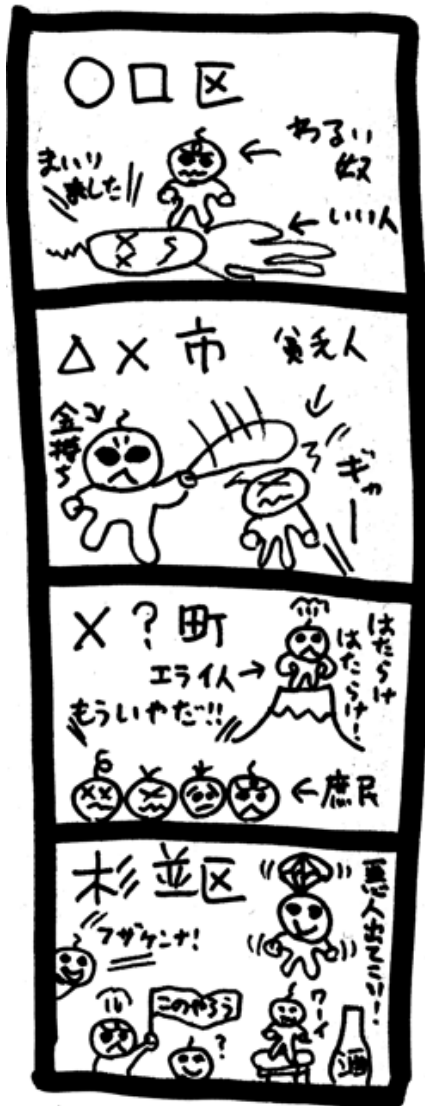 〇□区
わるい
奴
まいり
ました
いい人
△×市
貧乏人
金持ち
ギャー
×?町
はたらけ
はたらけ!
エライ人
もういやだ!!
庶民
杉並区
悪人出てこい!
フザケンナ!
このやろう
?
ワーイ
酒